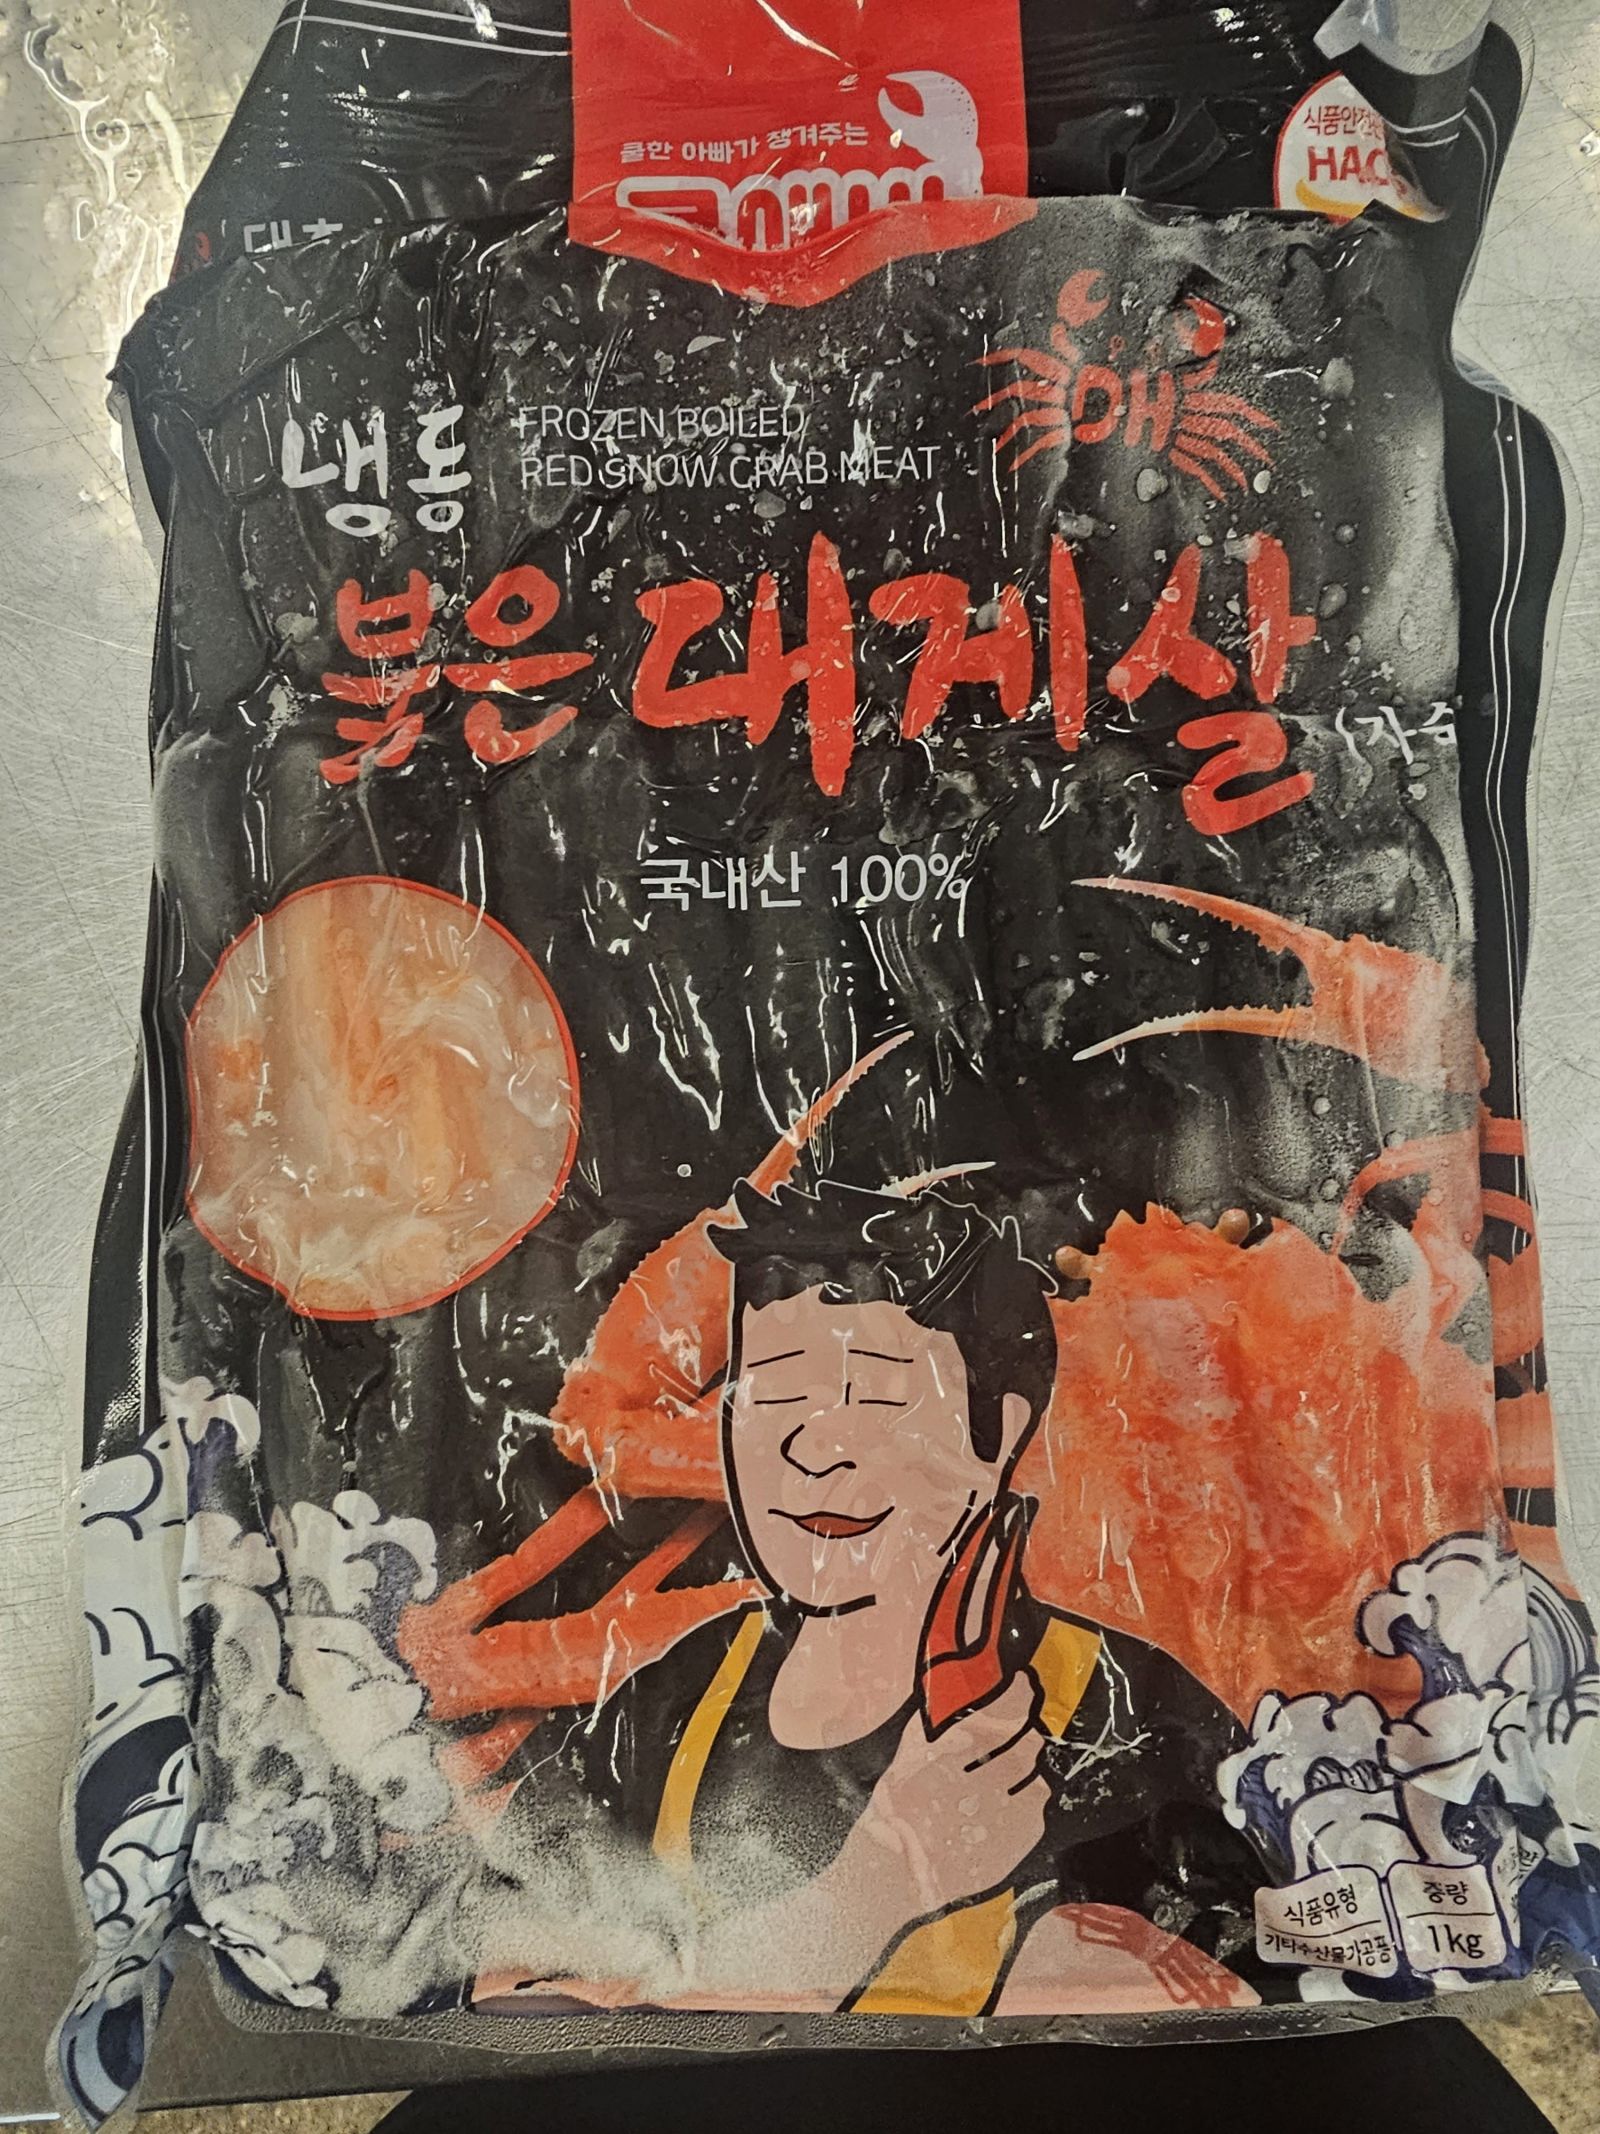 쿨한 아빠가 챙겨주는
HAC
냉동
FROZEN BOILED
RED SNOW CRAB MEAT
DH
붉은 대게살
국내산 100%
식품유형
기타수산물가공품
중량
1kg